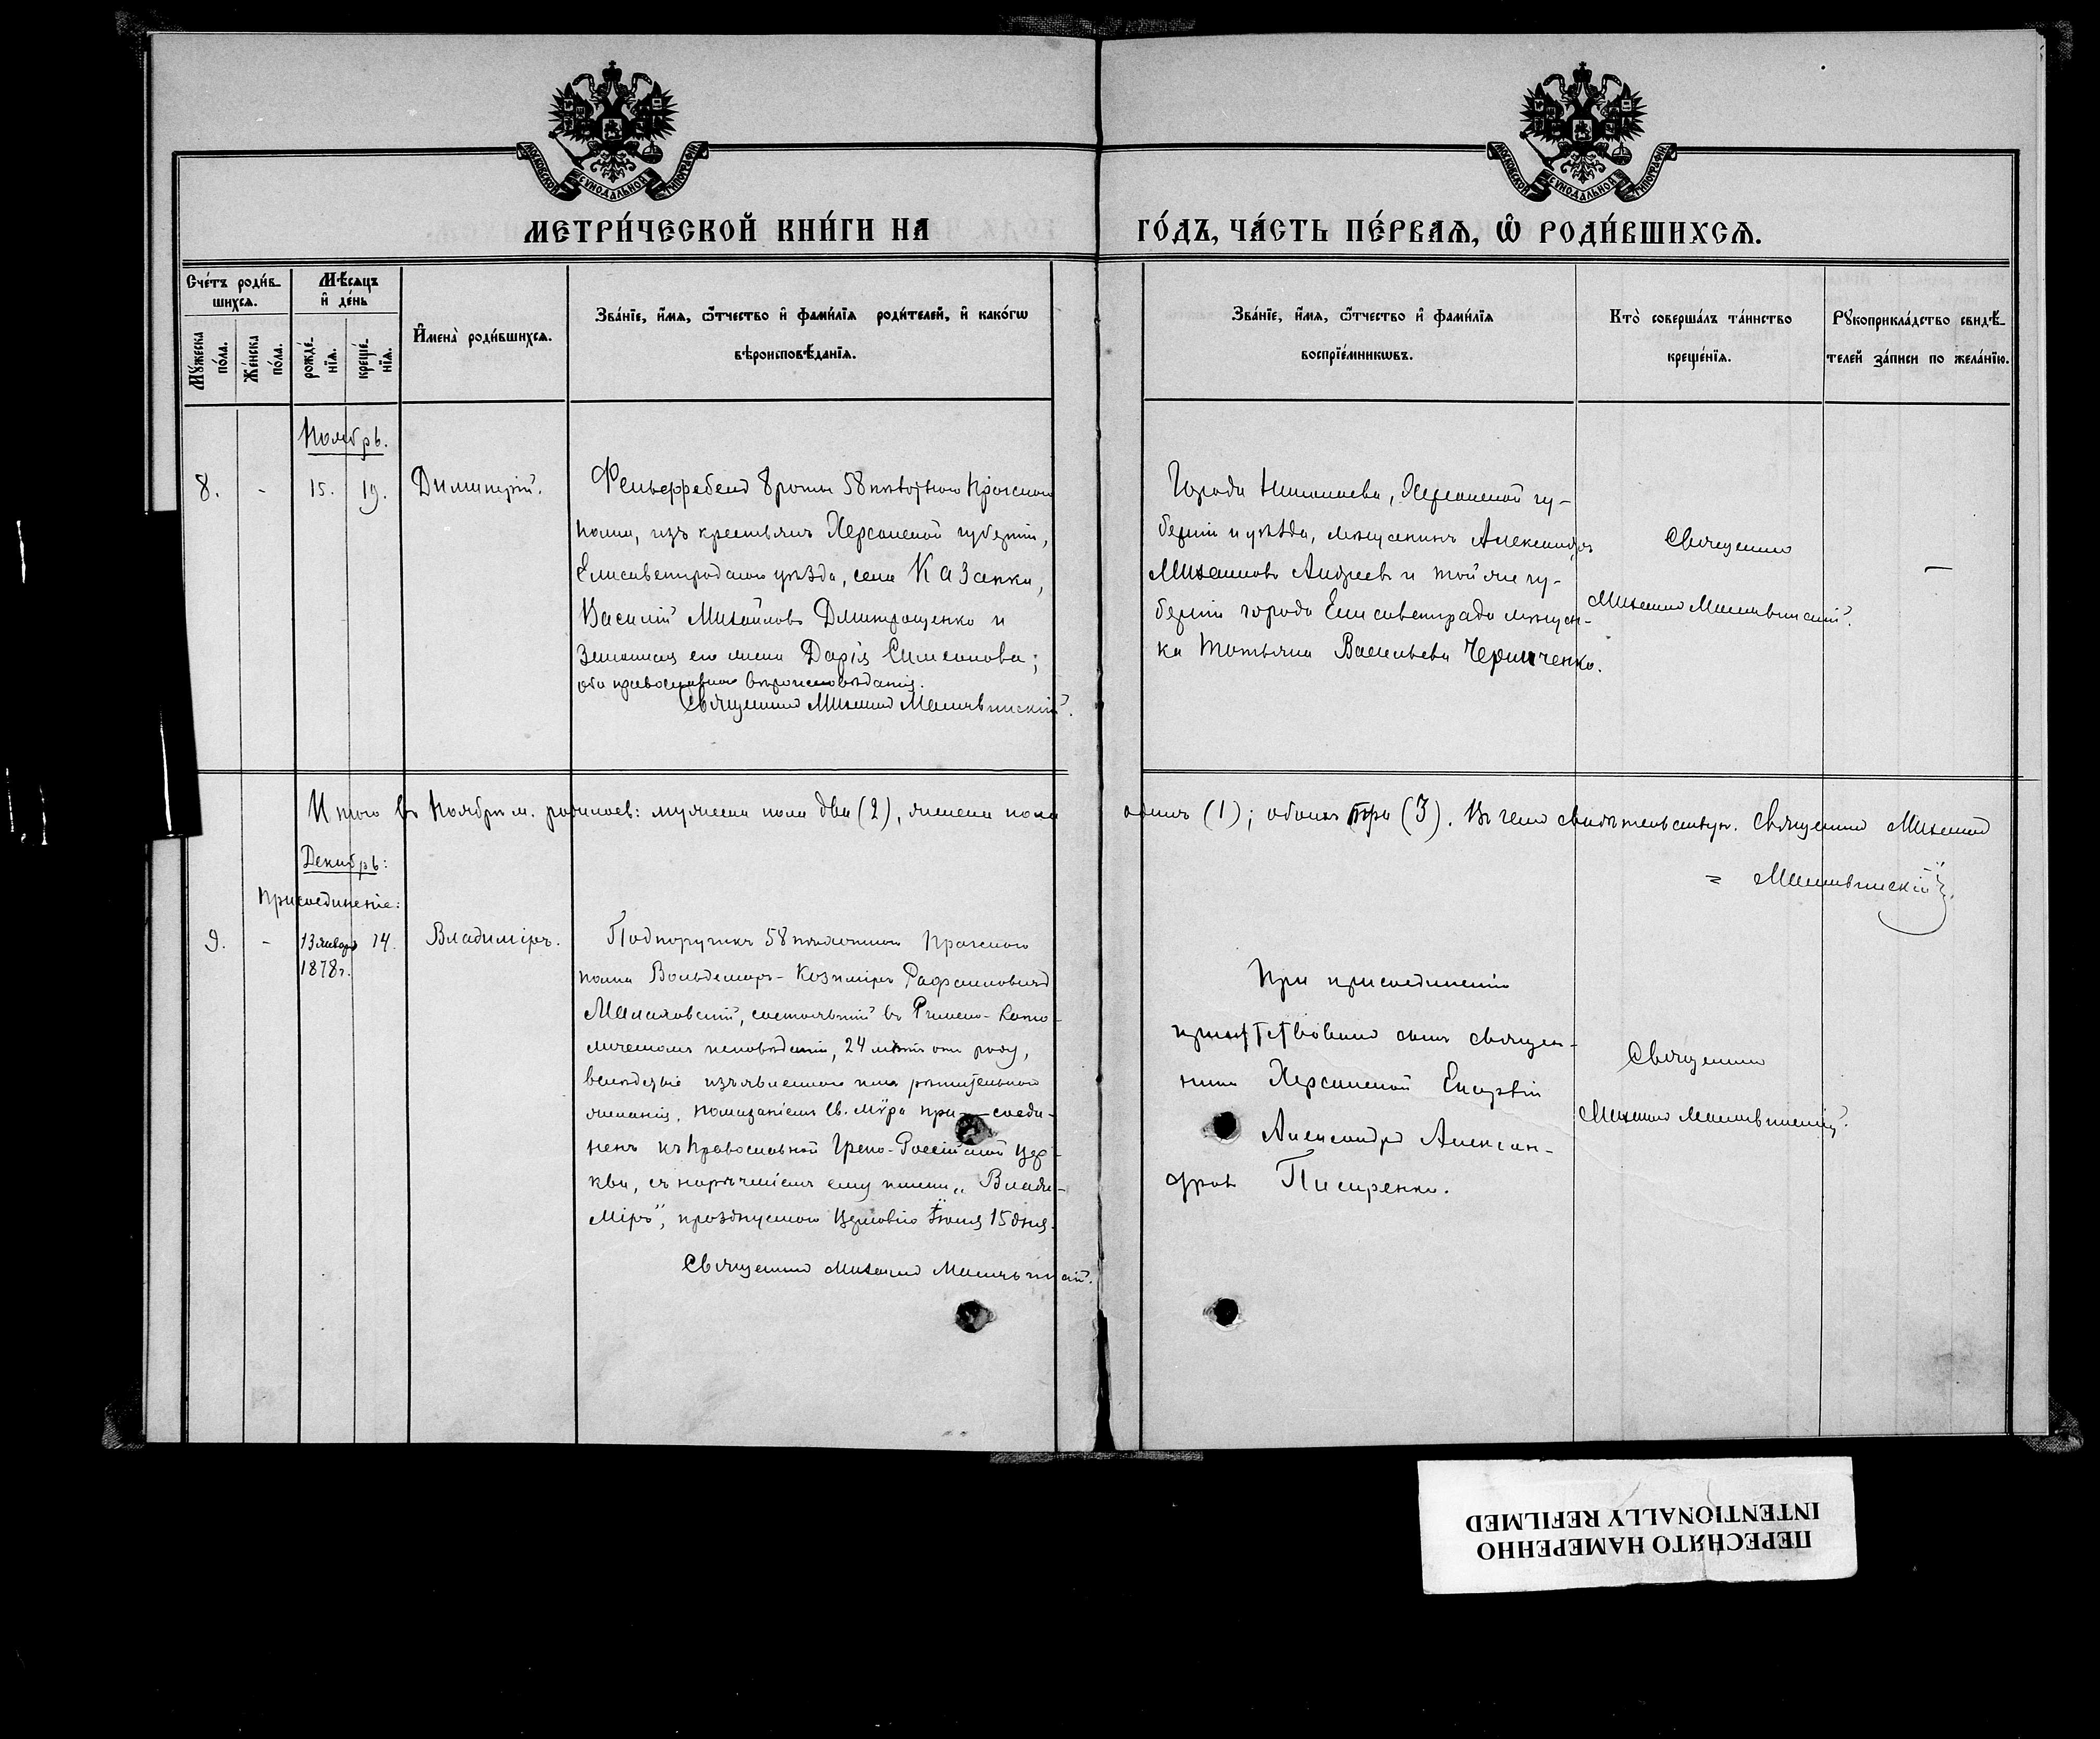 МОСКОВСКОЙ СѴНОДАЛЬНОЙ ТИПОГРАФІИ
МОСКОВСКОЙ СѴНОДАЛЬНОЙ ТИПОГРАФІИ
МЕТРИ́ЧЕСКОЙ КНИ́ГИ НА ГО́ДЪ, ЧА́СТЬ ПЕ́РВАѦ, Ѽ РОДИ́ВШИХСѦ.
Сче́тъ роди́в-
шихсѧ.
Мꙋ́жеска по́ла.
Же́нска по́ла.
Мѣ́сѧцъ и҆ де́нь
рожде́-нїѧ.
креще́-нїѧ.
И҆мена̀ роди́вшихсѧ.
Зва́нїе, и҆́мѧ, ѻ҆́тчество и҆ фами́лїѧ роди́телей, и҆ како́гѡ
вѣроисповѣ́данїѧ.
Зва́нїе, и҆́мѧ, ѻ҆́тчество и҆ фами́лїѧ
воспрїе́мникѡвъ.
Кто̀ соверша́лъ та́инство
креще́нїѧ.
Рꙋкоприкла́дство свидѣ́-
телей за́писи по жела́нїю.
Ноябрь.
8. - 15. 19. Димитрій.
Фельдфебель 8 роты 58 пѣхотнаго Пражскаго
полка, изъ крестьянъ Херсонской губерніи,
Елисаветградскаго уѣзда, села Казанки,
Василій Михайловъ Дмитрященко и
законная его жена Дарія Симеонова;
оба православнаго вѣроисповѣданія.
Священникъ Михаилъ
Города Николаева, Херсонской гу-
берніи и уѣзда, мѣщанинъ Александръ
Михаиловъ Андреевъ и той же гу-
берніи города Елисаветграда мѣщан-
ка Татьяна Васильева
Священникъ
Михаилъ
Итого въ Ноябрѣ м. родилось: мужеска пола два (2), женска пола одинъ (1); обоихъ три (3). Въ чемъ свидѣтельствую. Священникъ Михаилъ
Декабрь:
Присоединеніе:
9. - 13 января 14. Владиміръ.
1878 г.
Подпоручикъ 58 пѣхотнаго Пражскаго
полка Вольдемаръ-Козиміръ Рафаиловичъ
Малаховскій, состоявшій въ Римско-Като-
лическомъ исповѣданіи, 24 лѣтъ отъ роду,
вслѣдствіе изъявленнаго имъ рѣшительнаго
желанія, помазаніемъ Св. Мѵра при-соеди-
ненъ къ Православной Греко-Россійской Цер-
кви, съ нареченіемъ ему имени „Влади-
міръ", празднуемаго Церковію Іюля 15 дня.
Священникъ Михаилъ
При присоединеніи
присутствовалъ сынъ священ-
ника Херсонской Епархіи
Александръ Алексан-
дровъ Писаренко.
Священникъ
Михаилъ
ПЕРЕСНЯТО НАМЕРЕННО
INTENTIONALLY REFILMED